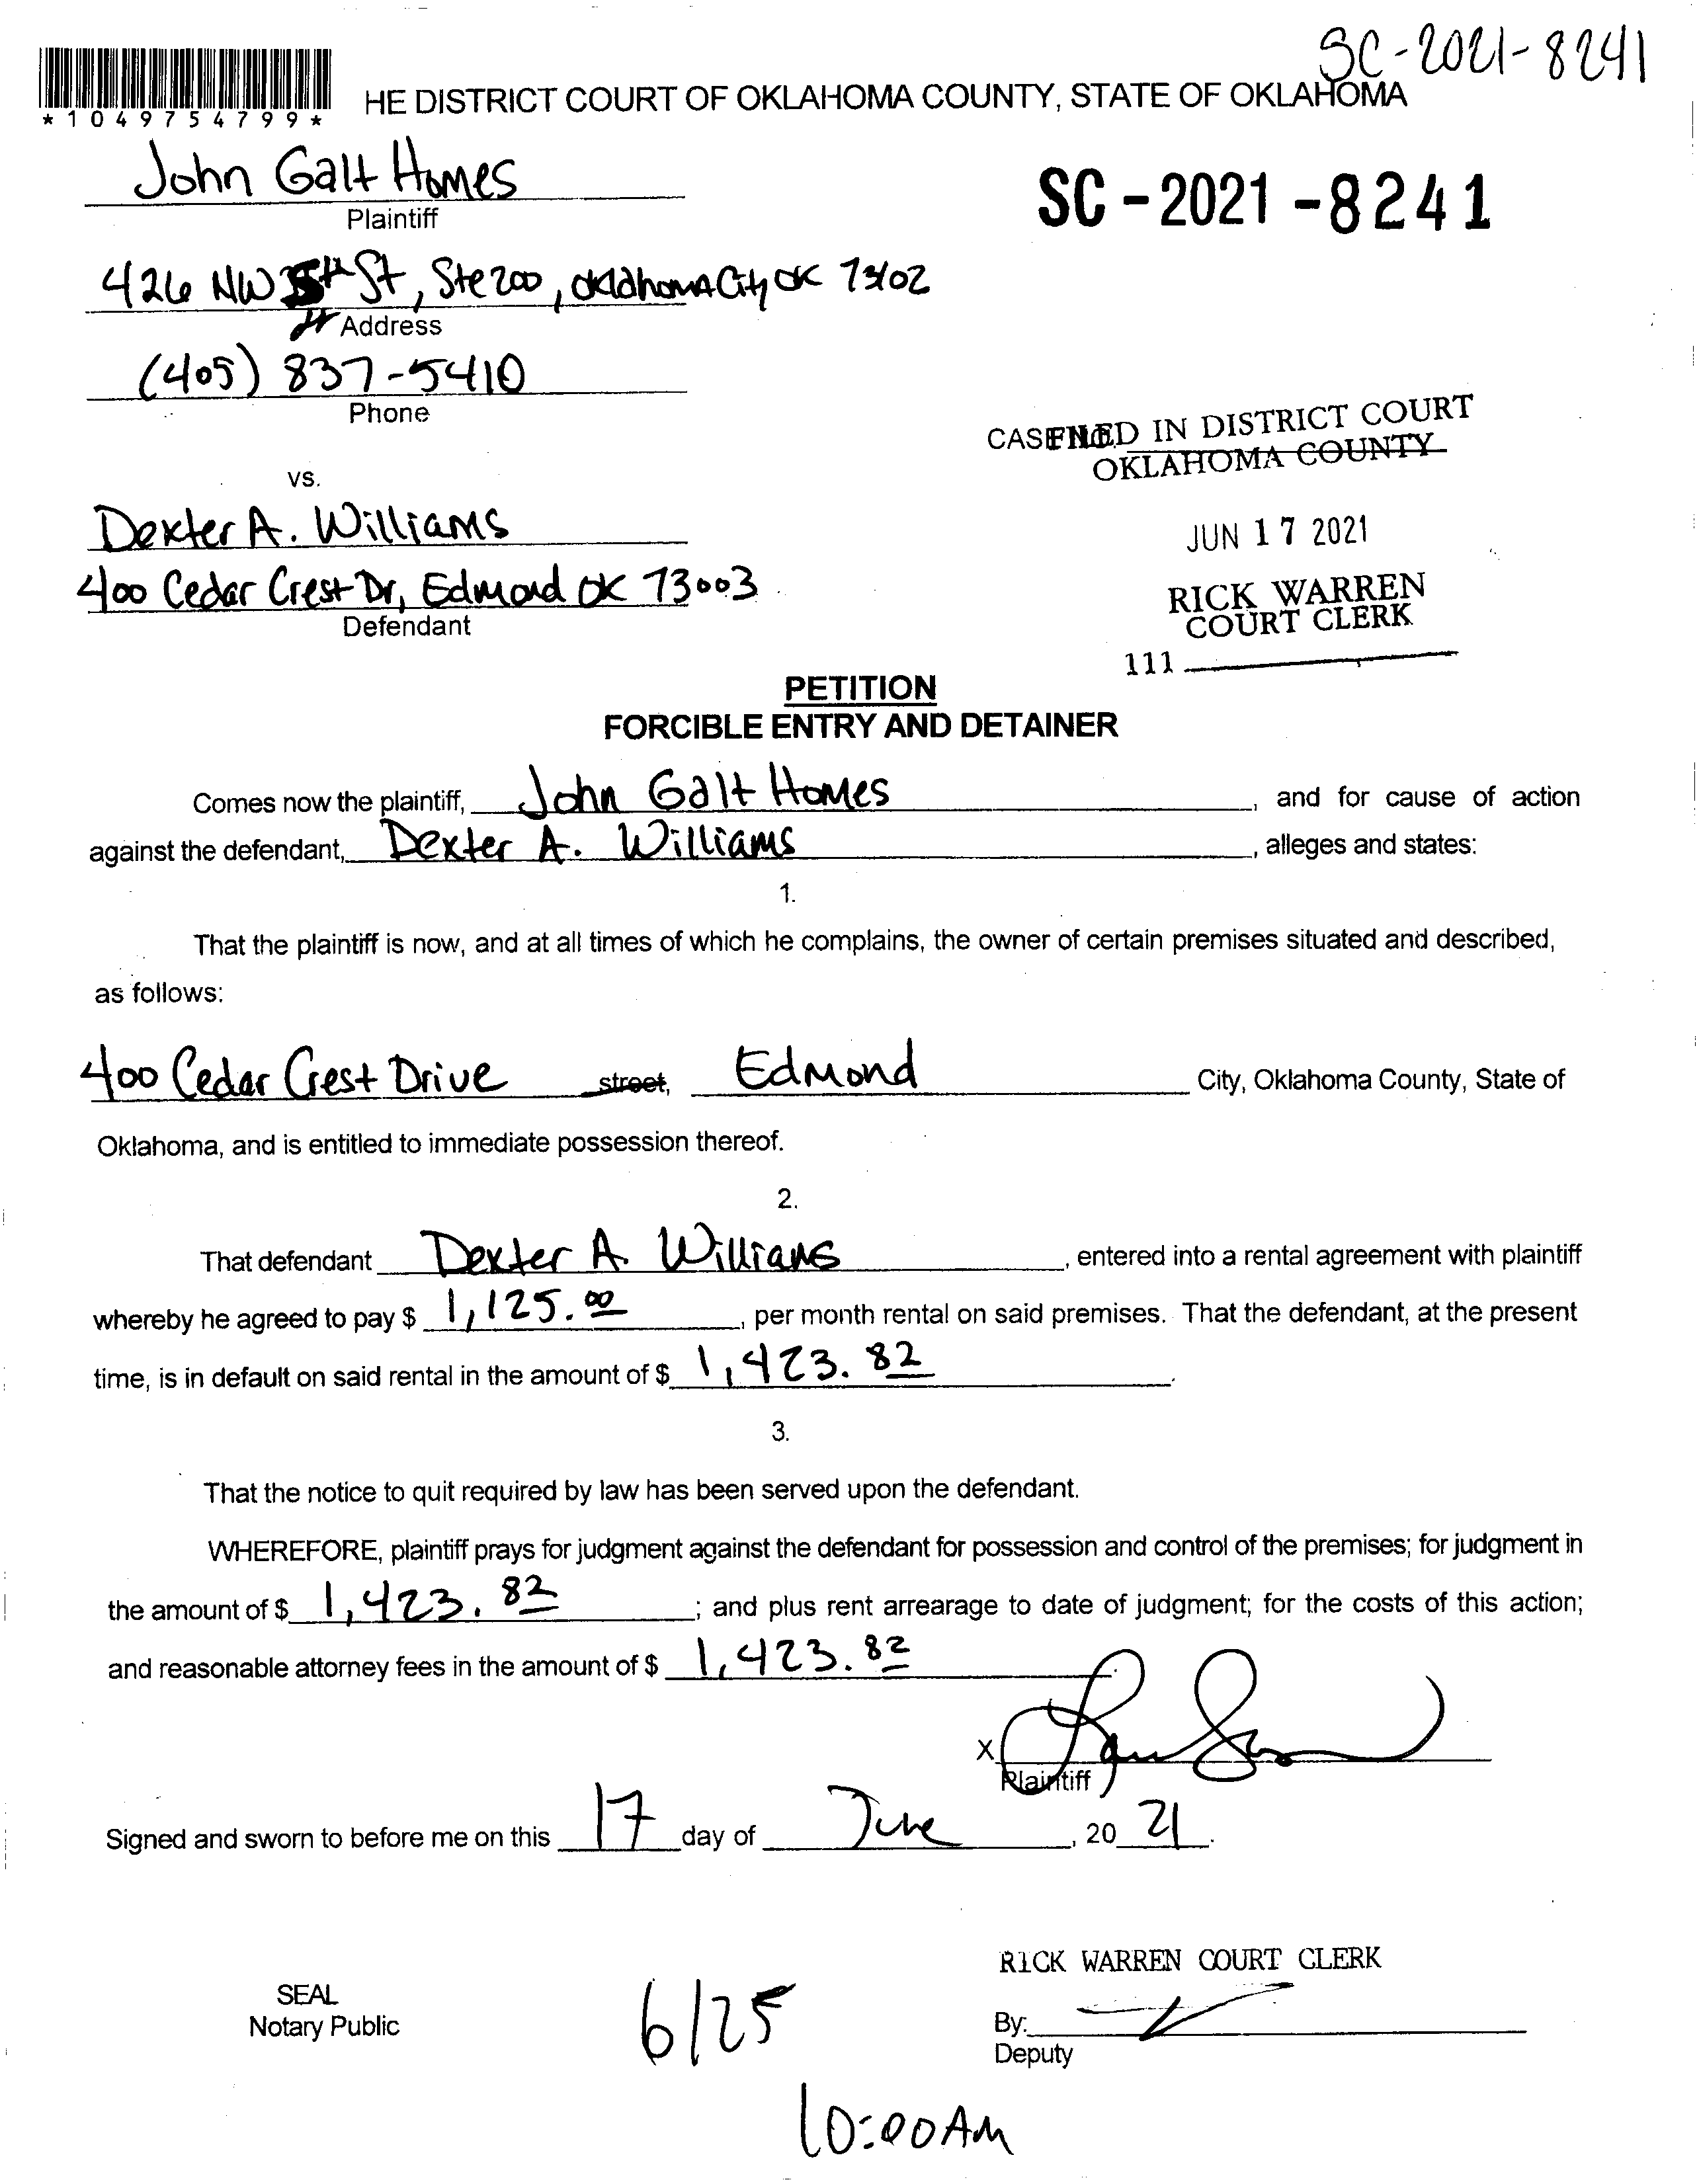 SC-2021-8241
*1049754799*
HE DISTRICT COURT OF OKLAHOMA COUNTY, STATE OF OKLAHOMA
John Galt Homes
Plaintiff
SC-2021-8241
426 NW St, Ste 200, Oklahoma City OK 73102
Address
(405) 837-5410
Phone
CASE NO.
FILED IN DISTRICT COURT
OKLAHOMA COUNTY
vs.
Dexter A. Williams
JUN 17 2021
400 Cedar Crest Dr, Edmond OK 73003
Defendant
RICK WARREN
COURT CLERK
111
PETITION
FORCIBLE ENTRY AND DETAINER
Comes now the plaintiff, John Galt Homes, and for cause of action
against the defendant, Dexter A. Williams, alleges and states:
1.
That the plaintiff is now, and at all times of which he complains, the owner of certain premises situated and described,
as follows:
400 Cedar Crest Drive street, Edmond City, Oklahoma County, State of
Oklahoma, and is entitled to immediate possession thereof.
2.
That defendant Dexter A. Williams, entered into a rental agreement with plaintiff
whereby he agreed to pay $ 1,125.00, per month rental on said premises. That the defendant, at the present
time, is in default on said rental in the amount of $ 1,423.82.
3.
That the notice to quit required by law has been served upon the defendant.
WHEREFORE, plaintiff prays for judgment against the defendant for possession and control of the premises; for judgment in
the amount of $ 1,423.82; and plus rent arrearage to date of judgment; for the costs of this action;
and reasonable attorney fees in the amount of $ 1,423.82
X
Plaintiff
Signed and sworn to before me on this 17 day of June, 20 21.
RICK WARREN COURT CLERK
SEAL
Notary Public
6/25
By:
Deputy
10:00AM